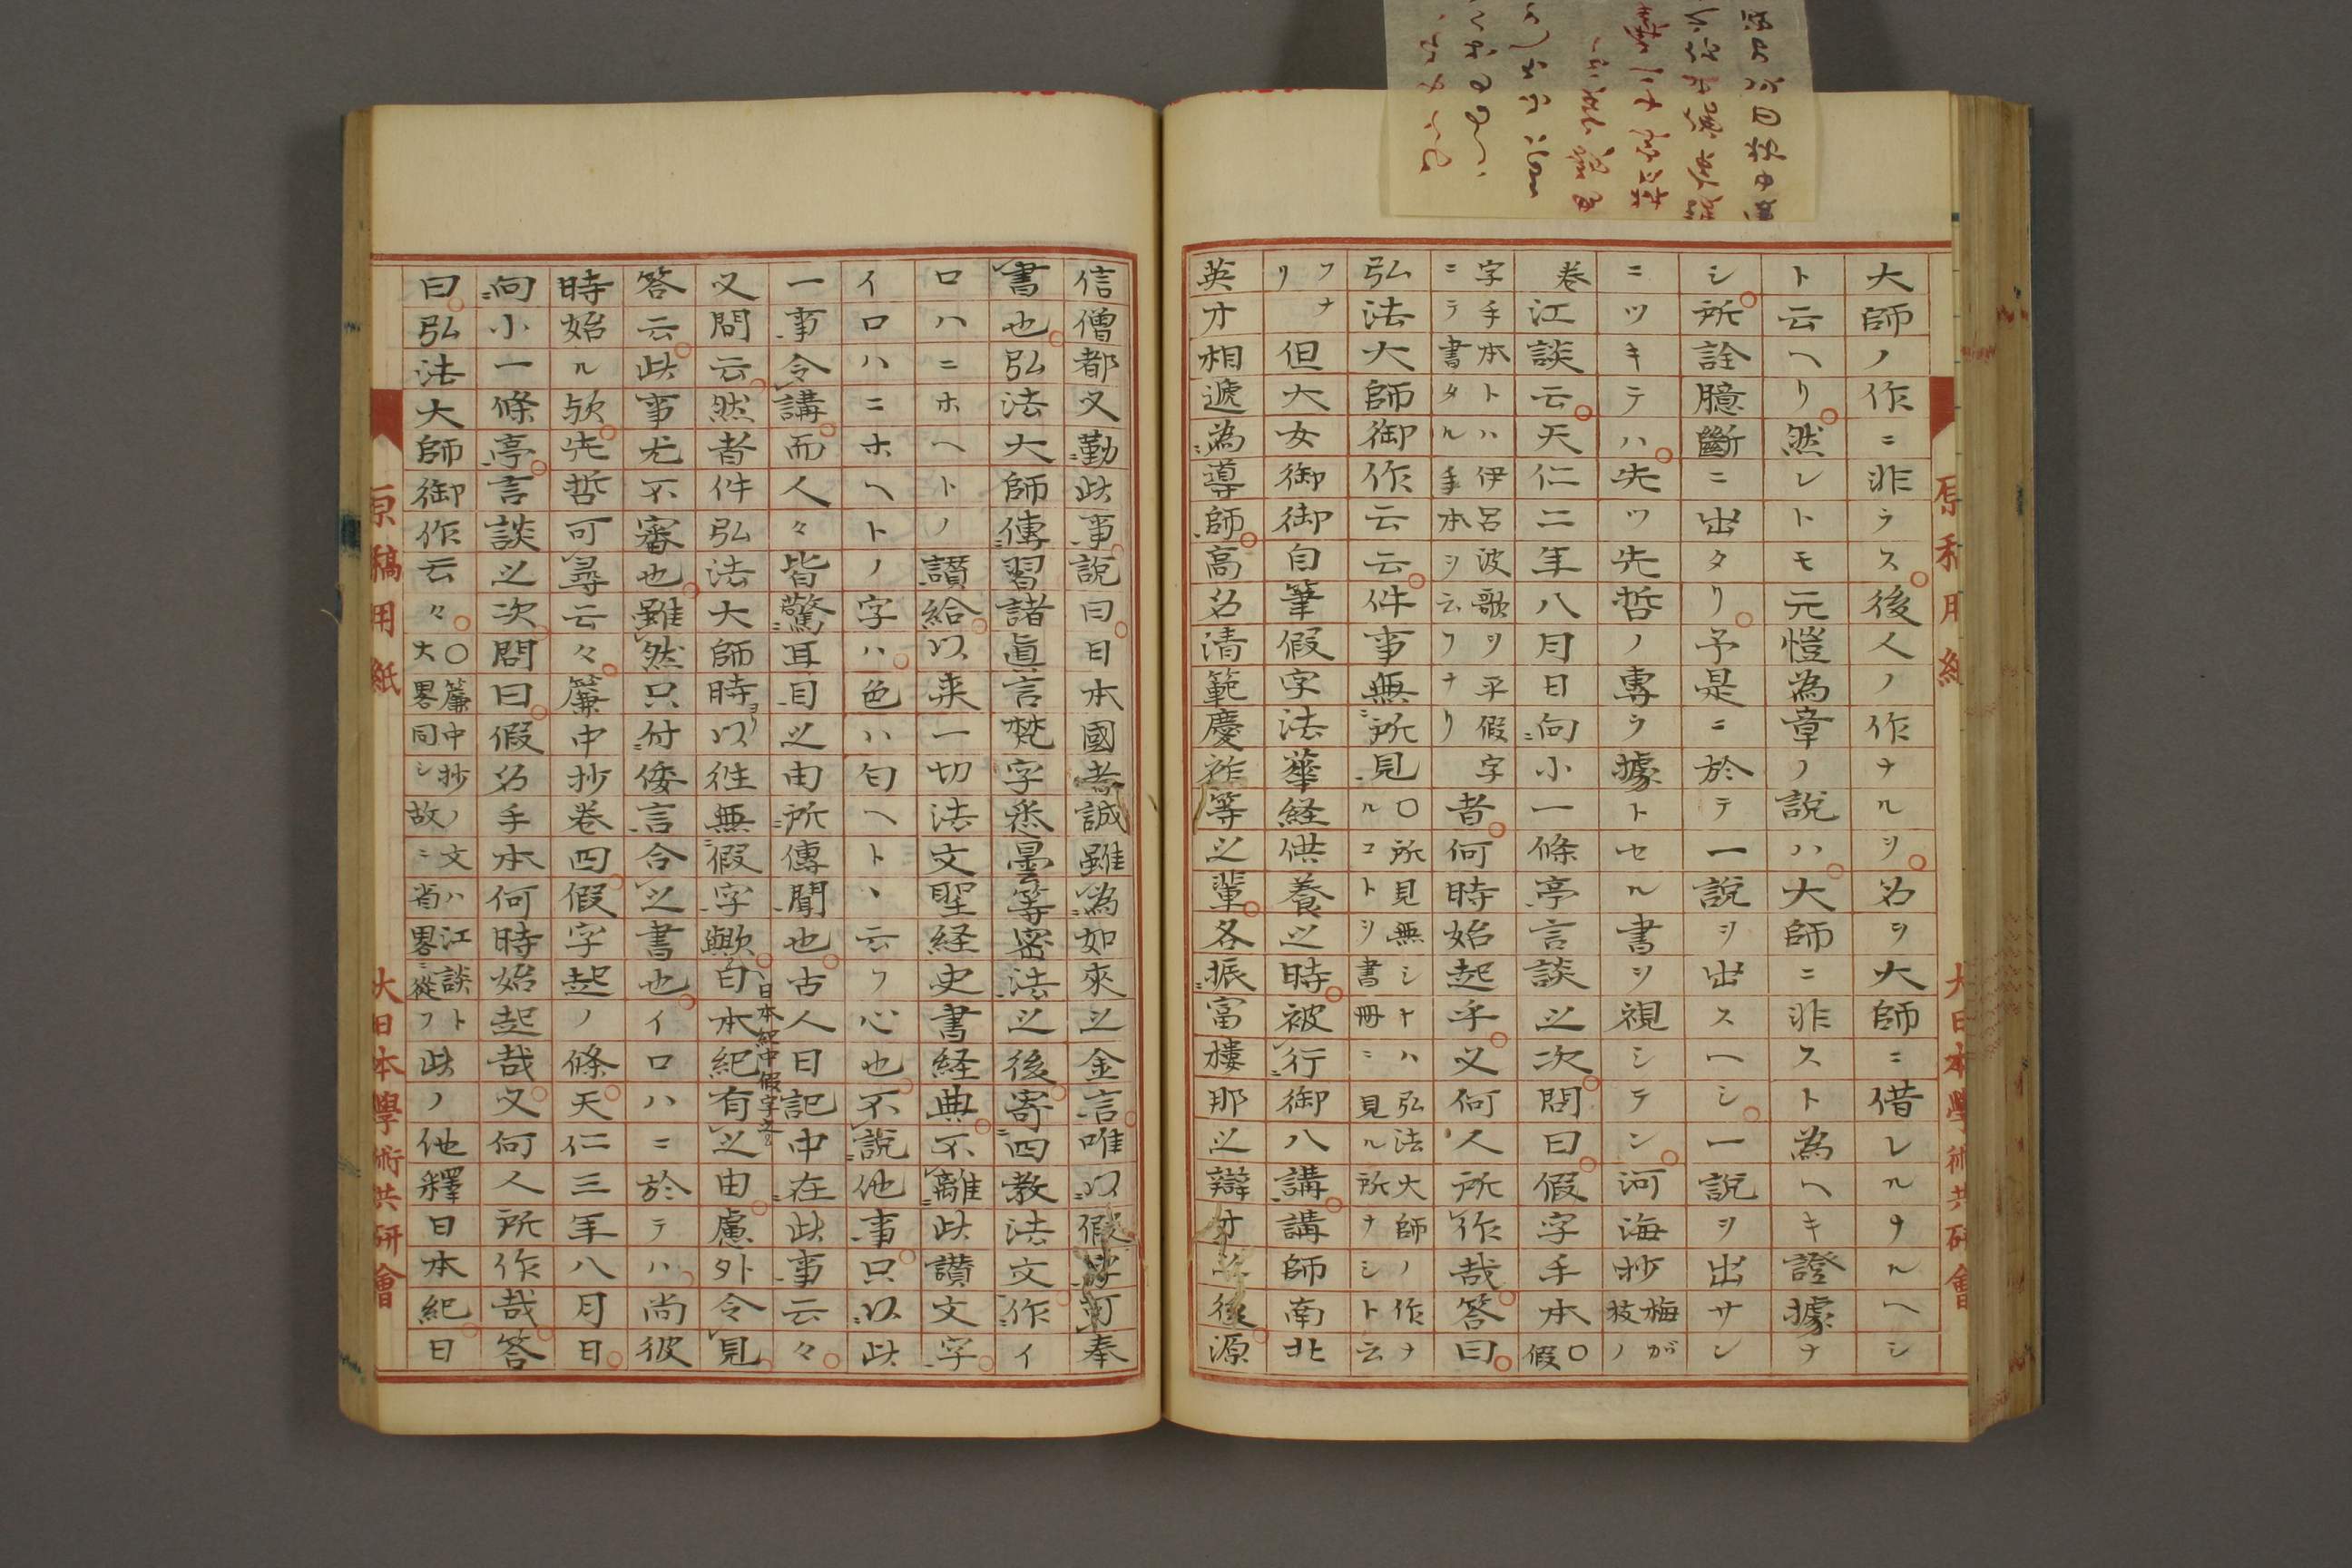 大師ノ作ニ非ラス後人ノ作ナルヲ名ヲ大師ニ借レルナルヘシ
ト云ヘリ然レトモ元愷為章ノ說ハ大師ニ非スト為ヘキ證據ナ
シ所詮臆斷ニ出タリ予是ニ於テ一說ヲ出スヘシ一說ヲ出サン
ニツキテハ先ツ先哲ノ專ラ據トセル書ヲ視シテン河海抄梅が枝ノ
卷江談云天仁二年八月日向小一條亭言談之次問曰假字手本〇假
字手本トハ伊呂波歌ヲ平假字ニテ書タル手本ヲ云フナリ者何時始起乎又何人所作哉答曰
弘法大師御作云云件事無所見〇所見無シヤハ弘法大師ノ作ナルコトヲ書冊ニ見ル所ナシト云
フナリ但大女御御自筆假字法華経供養之時被行御八講講師南北
英才相遞為導師高名清範慶祚等之輩各振富樓那之辯才 後源
信僧都又勤此事說曰日本國者誠雖為如來之金言唯以假字可奉
書也弘法大師傳習諸真言梵字悉曇等密法之後寄四教法文作イ
ロハニホヘトノ讃給以来一切法文聖経史書経典不離此讃文字
イロハニホヘトノ字ハ色ハ匂ヘト丶云フ心也不說他事只以此
一事令講而人々皆驚耳目之由所傳聞也古人日記中在此事云々
又問云然者件弘法大師時ヨリ以徃無假字歟日本紀中假字 自本紀有之由慮外令見
答云此事尤不審也雖然只付倭言合之書也イロハニ於テハ尚彼
時始ル欤先哲可尋云々簾中抄卷四假字起ノ條天仁三年八月日
向小一條亭言談之次問曰假名手本何時始起哉又何人所作哉答
曰弘法大師御作云々〇簾中抄ノ文ハ江談ト大畧同シ故ニ省畧ニ從フ此ノ他釋日本紀日
原稿用紙
大日本學術共研會
原稿用紙
大日本學術共研會